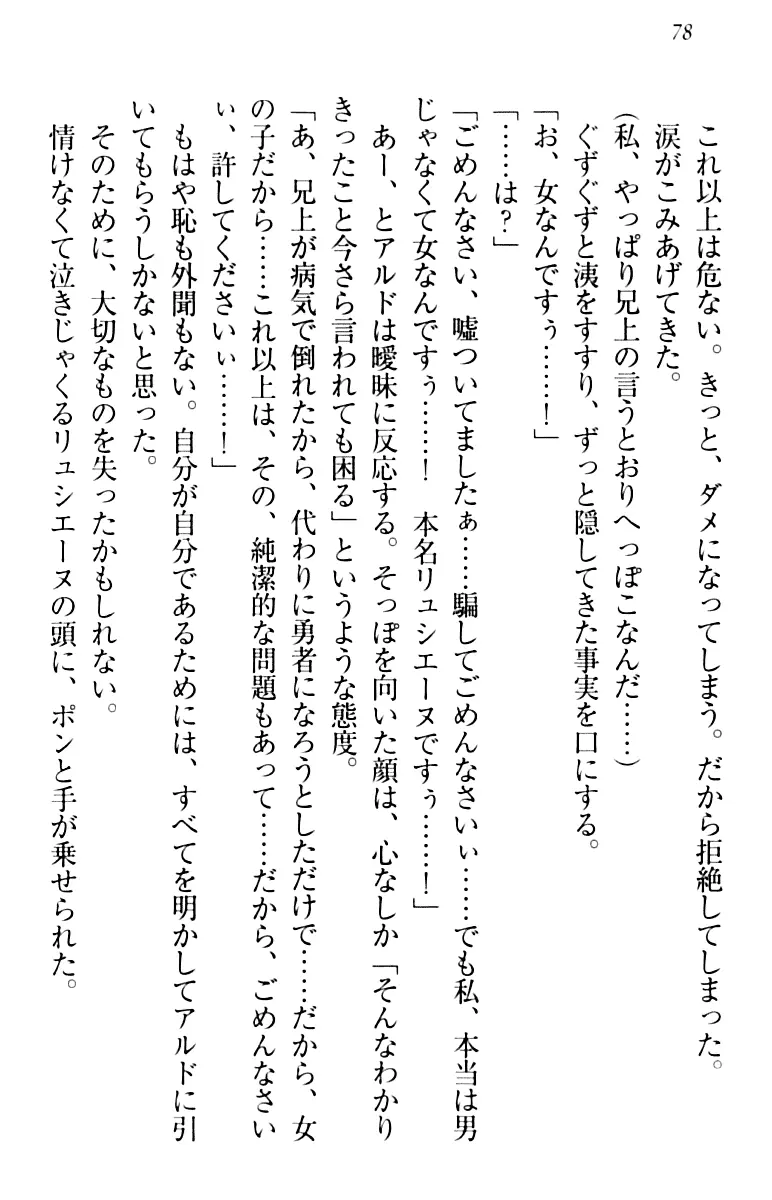 78
これ以上は危ない。きっと、ダメになってしまう。だから拒絶してしまった。
涙がこみあげてきた。
(私、やっぱり兄上の言うとおりへっぽこなんだ……)
ぐずぐずと洟をすすり、ずっと隠してきた事実を口にする。
「お、女なんですぅ……!」
「……は?」
「ごめんなさい、嘘ついてましたぁ……騙してごめんなさいぃ……でも私、本当は男
じゃなくて女なんですぅ……! 本名リュシエーヌですぅ……!」
あー、とアルドは曖昧に反応する。そっぽを向いた顔は、心なしか「そんなわかり
きったこと今さら言われても困る」というような態度。
「あ、兄上が病気で倒れたから、代わりに勇者になろうとしただけで……だから、女
の子だから……これ以上は、その、純潔的な問題もあって……だから、ごめんなさい
ぃ、許してくださいぃ……!」
もはや恥も外聞もない。自分が自分であるためには、すべてを明かしてアルドに引
いてもらうしかないと思った。
そのために、大切なものを失ったかもしれない。
情けなくて泣きじゃくるリュシエーヌの頭に、ポンと手が乗せられた。